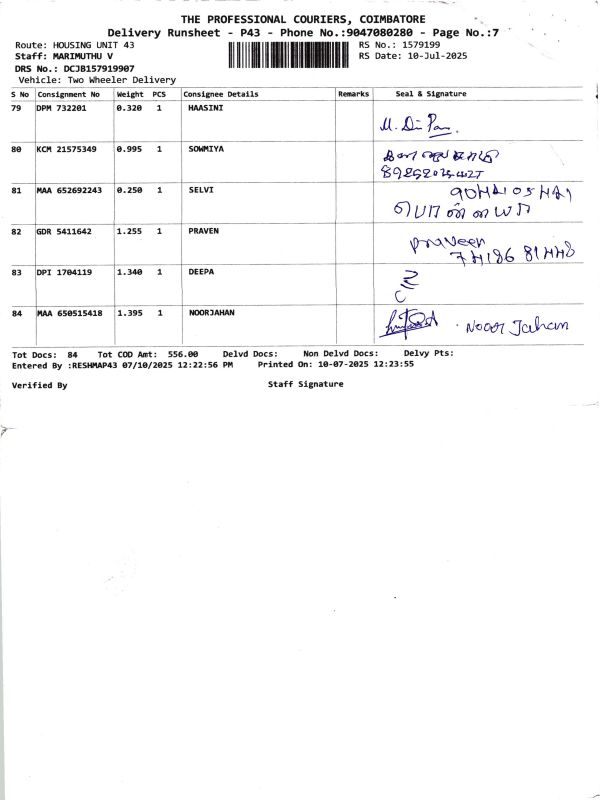 THE PROFESSIONAL COURIERS, COIMBATORE
Delivery Runsheet - P43 - Phone No.:9047080280 - Page No.:7
Route: HOUSING UNIT 43 RS No.: 1579199
Staff: MARIMUTHU V RS Date: 10-Jul-2025
DRS No.: DCJB157919907
Vehicle: Two Wheeler Delivery
S No Consignment No Weight PCS Consignee Details Remarks Seal & Signature
79 DPM 732201 0.320 1 HAASINI
80 KCM 21575349 0.995 1 SOWMIYA
81 MAA 652692243 0.250 1 SELVI
82 GDR 5411642 1.255 1 PRAVEN Praveen
83 DPI 1704119 1.340 1 DEEPA
84 MAA 650515418 1.395 1 NOORJAHAN Noor Jahan
Tot Docs: 84 Tot COD Amt: 556.00 Delvd Docs: Non Delvd Docs: Delvy Pts:
Entered By :RESHMAP43 07/10/2025 12:22:56 PM Printed On: 10-07-2025 12:23:55
Verified By Staff Signature